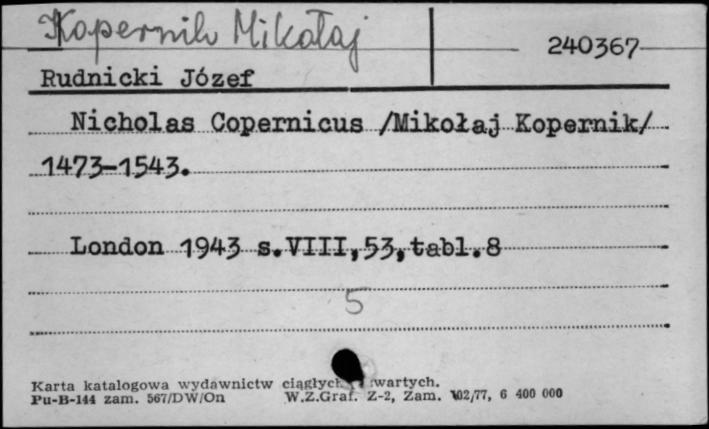 Kopernik Mikołaj
240367
Rudnicki Józef
Nicholas Copernicus /Mikołaj Kopernik/
1473-1543.
London 1943 s.VIII,53,tabl.8
5
Karta katalogowa wydawnictw ciągłych wartych.
Pu-B-144 zam. 567/DW/On W.Z.Graf. Z-2, Zam. 102/77, 6 400 000